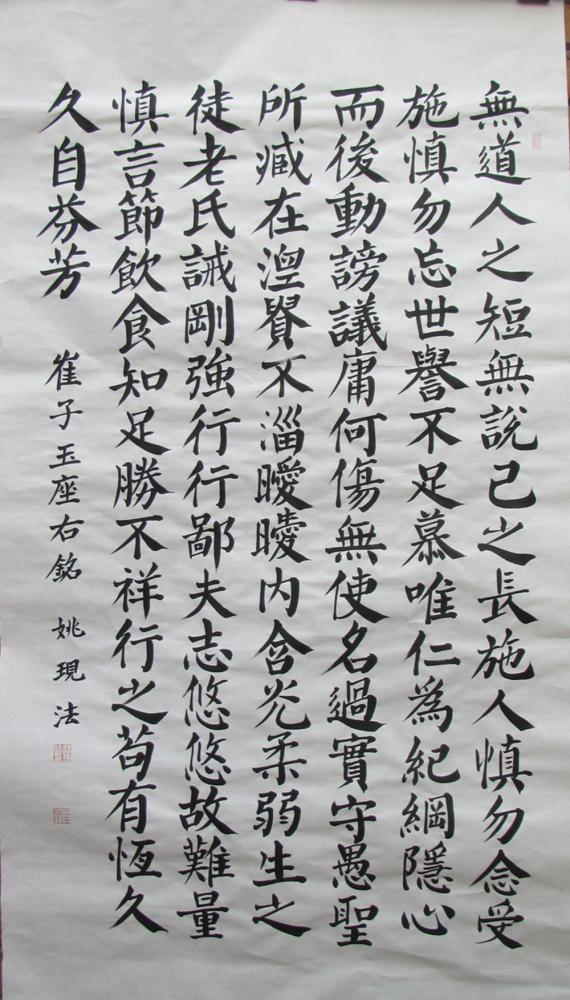 無道人之短無說己之長施人慎勿念受
施慎勿忘世譽不足慕唯仁爲紀綱隱心
而後動謗議庸何傷無使名過實守愚聖
所臧在湼貴不淄曖曖内含光柔弱生之
徒老氏誡剛強行行鄙夫志悠悠故難量
慎言節飲食知足勝不祥行之苟有恆久
久自芬芳 崔子玉座右銘 姚現法